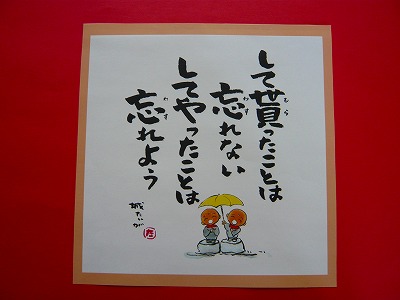 して貰ったことは
忘れない
してやったことは
忘れよう